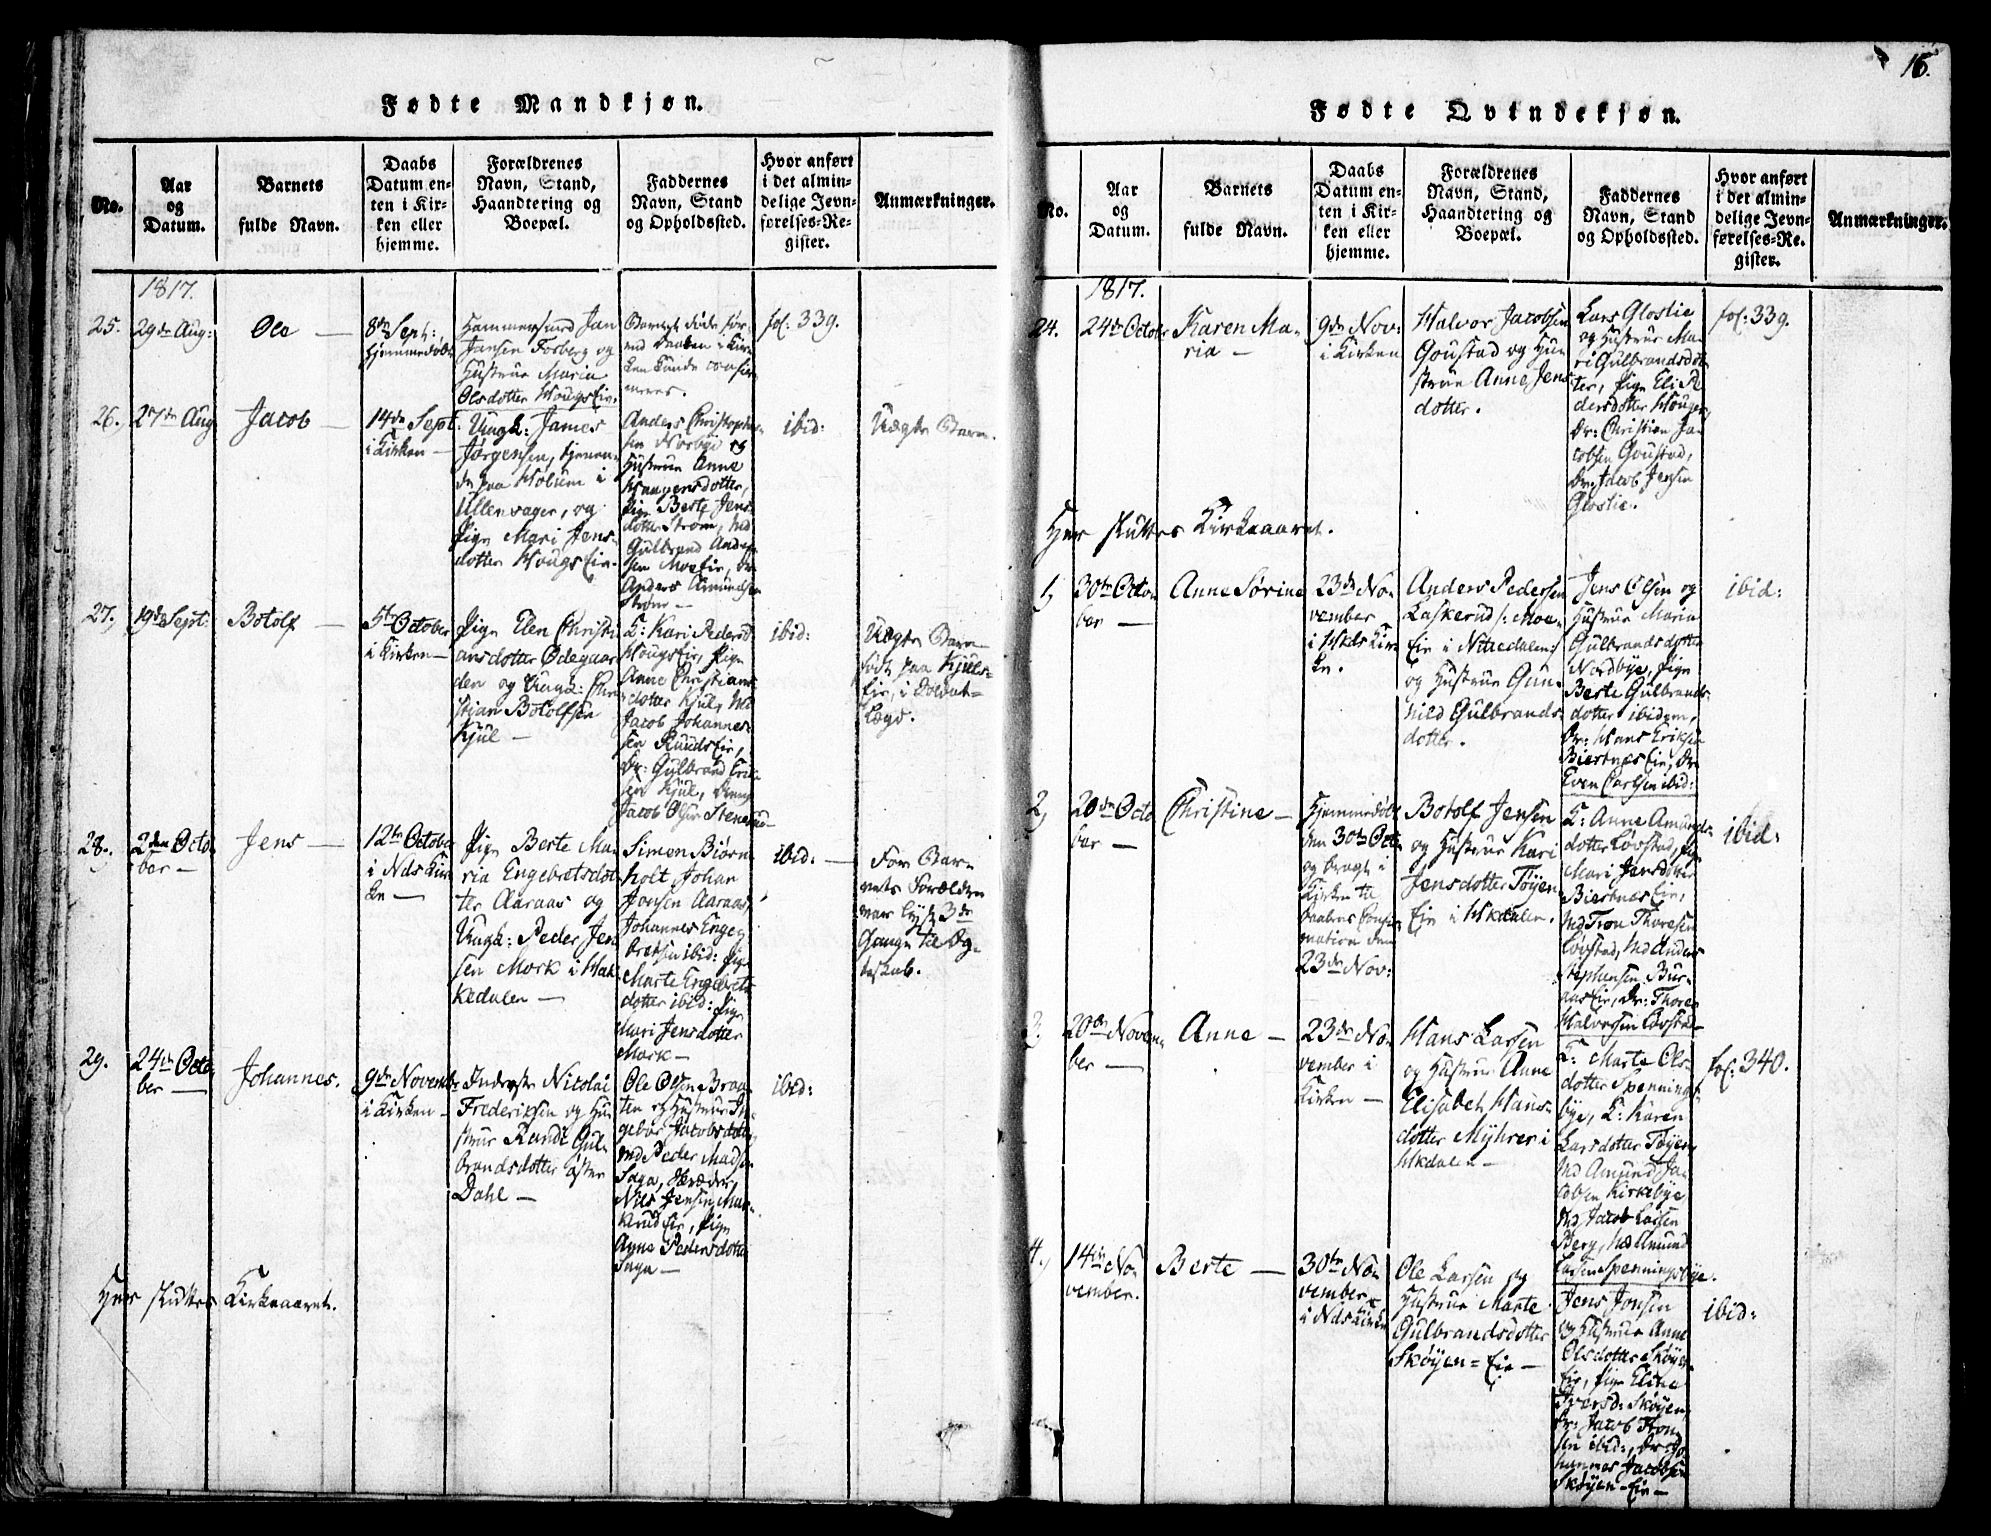 Fødte Mandkjøn.
No.
Aar
og
Datum.
Barnets
fulde Navn.
Daabs
Datum en-
ten i Kir-
ken eller
hjemme.
Forældrenes
Navn, Stand,
Haandtering og
Boepæl.
Faddernes
Navn, Stand
og Opholdssted.
Hvor anført
i det almin-
delige Jevn-
førelses-Re-
gister.
Anmærkninger.
1817.
25.
29de Aug:
Ole —
8de Sept:
hjemmedøbt
Jan
Jansen Forberg og
Hustrue Maria
Olsdotter Hougs Eie.
Barnet døde før-
end Daaben i Kir-
ken kunde confir-
meres.
fol: 339.
26.
27de Aug
Jacob —
14de Sept:
i Kirken —
Ungk: James
Jørgensen, tjenen-
de paa Holum i
Ullensager, og
Pige Mari Jens-
dotter Hougs Eie.
Anders Christopher-
sen Norbye og
Hustrue Anne
Haagensdotter,
Pige Berte Jens-
dotter Strøm,
Gulbrand Ander-
sen Moe Eie, Dr.
Anders Amundsen
Strøm —
ibid:
Uægte Barn.
27,
19de Sept:
Botolf —
5te October
i Kirken —
Pige Elen Christi-
ansdotter Ødegaar-
den og Ungk: Chri-
stian Botolfsen
Kjul —
K: Kari Pedersd
Hougs Eie, Pige
Anne Christians-
dotter Kjul,
Jacob Johannes-
sen Ruuds Eie,
Dr: Gulbrand Erik-
sen Kjul,
Jacob Olsen Stenerud —
ibid:
Uægte Barn
født paa Kjuls-
Eie, i
Lægd.
28.
2den Octo-
ber —
Jens —
12te October
i Nds Kir-
ken —
Pige Berte Ma-
ria Engebretsdot-
ter Aaraas og
Ungk: Peder Jen-
sen Mork i Hak-
kedalen —
Simen Biørn-
holt, Johan
Jonsen Aaraas,
Johannes Enge-
bretsen ibid: Pige
Marte Engebrets-
dotter ibid: Pige
Mari Jensdotter
Mork —
ibid: —
For Bar-
nets Forældre
var lyst 3de
Gange til Æg-
teskab.
29.
24de Octo-
ber —
Johannes.
9de November
i Kirken —
Inderster Nicolai
Frederiksen og Hu-
strue Randi Gul-
brandsdotter
Dahl —
Ole Olsen Braa-
ten og Hustrue In-
gebor Jacobsdotter,
Md Peder Madsen
Saga,
Nils Jensen
Eie, Pige
Anne Pedersdotter
Saga —
ibid:
Her sluttes Kirkeaaret.
15.
Fødte Qvindekjøn.
No.
Aar
og
Datum.
Barnets
fulde Navn.
Daabs
Datum en-
ten i Kir-
ken eller
hjemme.
Forældrenes
Navn, Stand,
Haandtering og
Boepæl.
Faddernes
Navn, Stand
og Opholdssted.
Hvor anført
i der almin-
delige Jevn-
førelses-Re-
gister.
Anmærkninger.
1817.
24.
24de Octobr
Karen Ma-
ria —
9de Nov:
i Kirken
Halvor Jacobsen
Goustad og Hu-
strue Anne Jens
dotter.
Lars Gloslie
og Hustrue Ma-
ri Gulbrandsdot-
ter, Pige Eli
dersdotter Houger,
Dr: Christian Ja-
cobsen Goustad,
Dr: Jacob Jensen
Gloslie.
fol: 339.
Her sluttes Kirkeaaret.
1,
30te Octo-
ber —
Anne Sørine
23de No-
vember
i Hkds Kir-
ken.
Anders Pedersen
Laskerud /: Moe-
Eie i Nittedalen:/
og Hustrue Gun-
hild Gulbrands-
dotter.
Jens Olsen og
Hustrue Maria
Gulbrandsdotter
Nordbye, Pige
Berte Gulbrands-
dotter ibidem,
Dr: Hans Eriksen
Biertnæs Eie, Dr
Even Carlsen ibid:
ibid:
2,
20de Octo-
ber —
Christine —
Hjemmedøbt
den 30te Octr
og bragt i
Kirken til
Daabens Confir-
mation den
23de Nov:
Botolf Jensen
og Hustrue Kari
Jensdotter Tøyen
Eie i Hkdalen.
K: Anne Amunds-
dotter Løvstad,
Mari Jensdotter
Biertnæs Eie,
Md Tron Thoresen
Løvstad, Md Anders
Stephensen Bur-
aas Eie, Dr: Thore
Halvorsen Løvstad —
ibid:
3.
20de Novem-
ber —
Anne —
23de No-
vember i
Kirken —
Hans Larsen
og Hustrue Anne
Elisabet Hans-
dotter Myhrer i
Hkdalen —
K: Marte Ols-
dotter Spennings-
bye, K: Karen
Larsdotter Tøyen,
Md Amund Ja-
cobsen Kirkebye
Md Jacob Larsen
Berg, Md Amund
Larsen Spenningsbye.
fol: 340.
4,
14de No-
vember.
Berte —
30te No-
vember
i Nds Kirken
Ole Larsen og
Hustrue Marte
Gulbrandsdotter
Skøyen-Eie —
Jens Jonsen
og Hustrue Anne
Olsdotter Skøyen
Eie, Pige Eline
Iversd: Skøyen,
Dr: Jacob Tron-
sen ibid:, Dr: Jo-
hannes Jacobsen
Skøyen-Eie —
ibid: